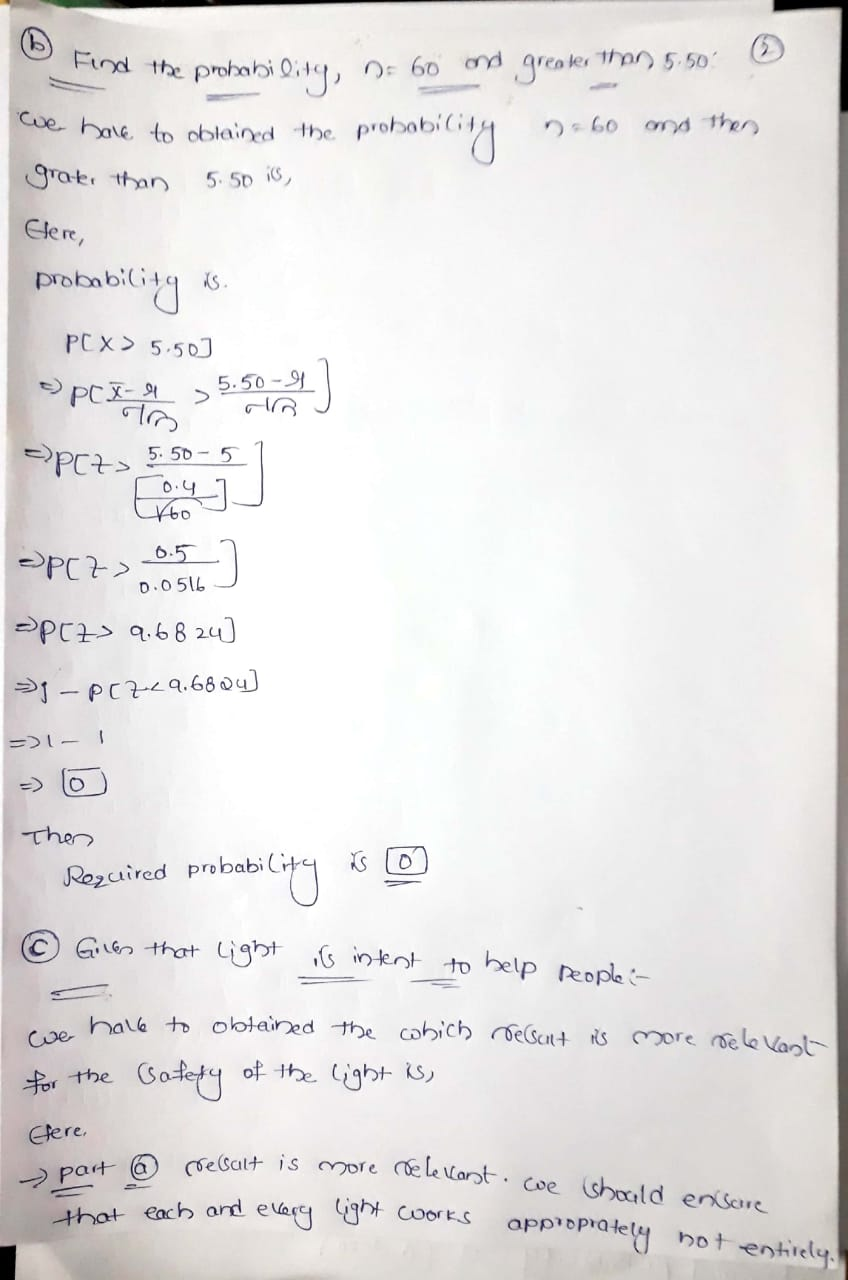 (b) Find the probability, n = 60 and greater than 5.50: (2)
we have to obtained the probability n = 60 and then
grater than 5.50 is,
Here,
probability is.
P[X > 5.50]
⇒ P[(x̄ - μ)/(σ/√n) > (5.50 - μ)/(σ/√n)]
⇒ P[Z > (5.50 - 5)/[0.4/√60]]
⇒ P[Z > 0.5/0.0516]
⇒ P[Z > 9.6824]
⇒ 1 - P[Z < 9.6824]
⇒ 1 - 1
⇒ 0
Then
Required probability is 0
(c) Given that light is intent to help people :-
we have to obtained the which result is more relevant
for the safety of the light is,
Here,
→ part (a) result is more relevant. we should ensure
that each and every light works appropriately not entirely.